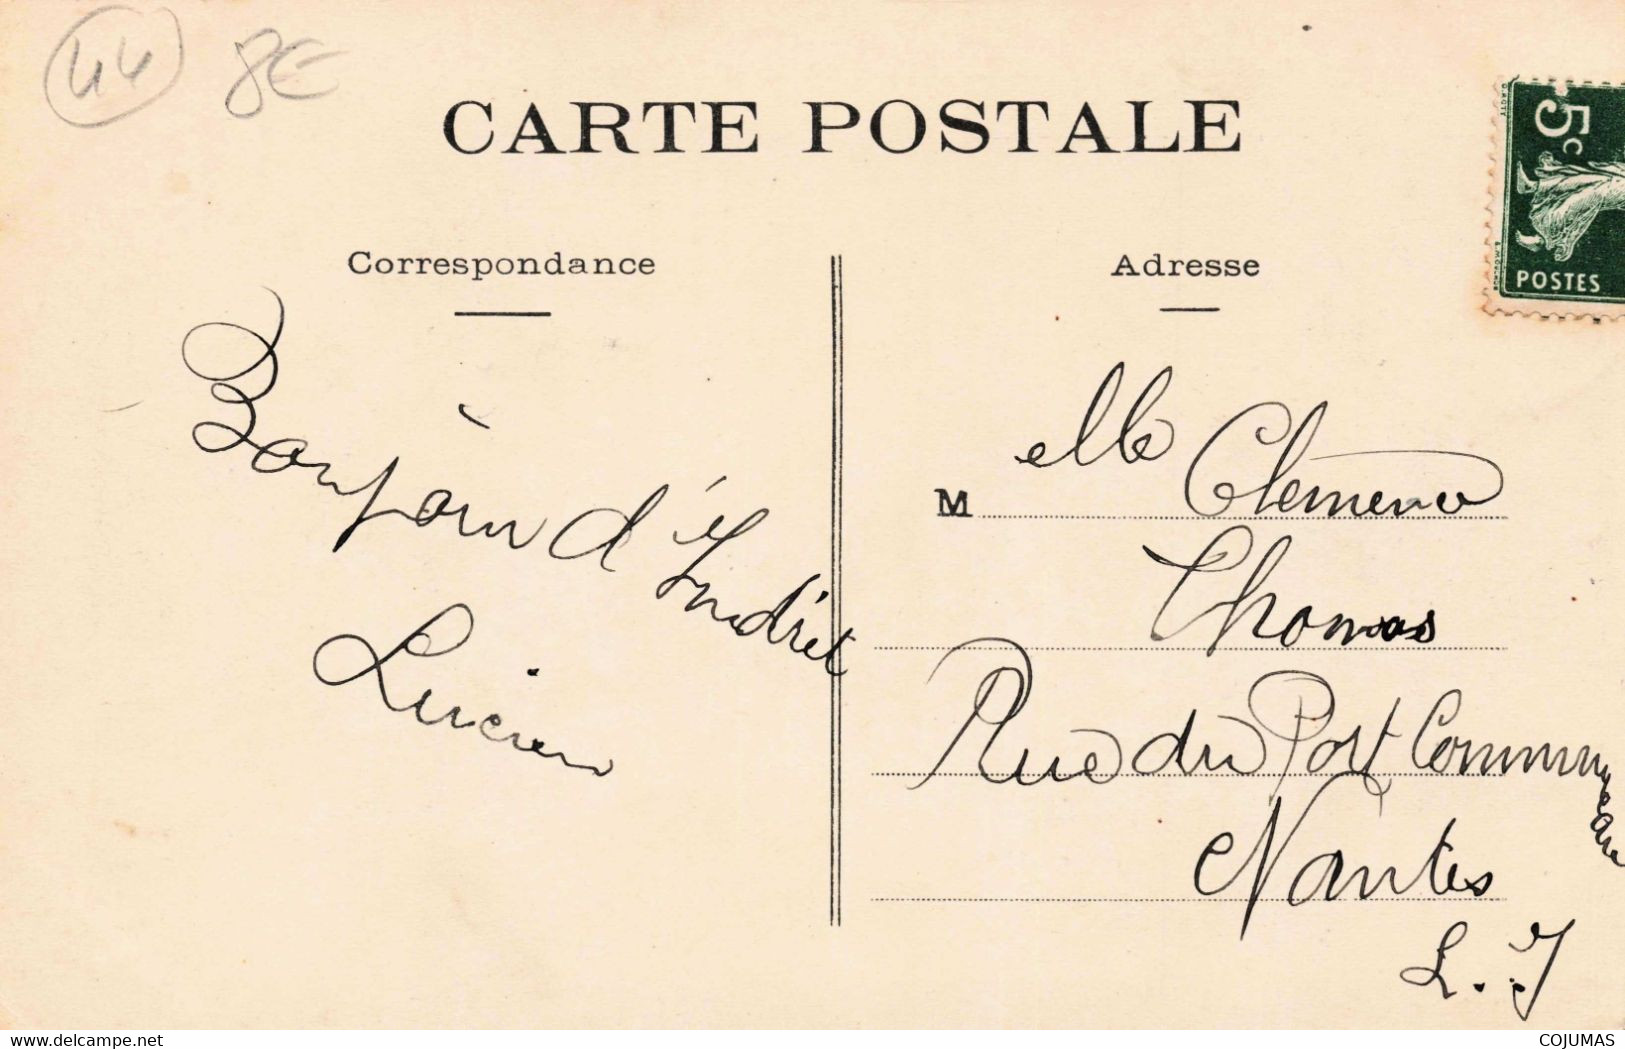 44 8€
CARTE POSTALE
5c
POSTES
Correspondance
Adresse
Bonjour d'Indret
Lucien
M elle Clemence
Thomas
Rue du Port Communeau
Nantes
L. I
delcampe.net
COJUMAS